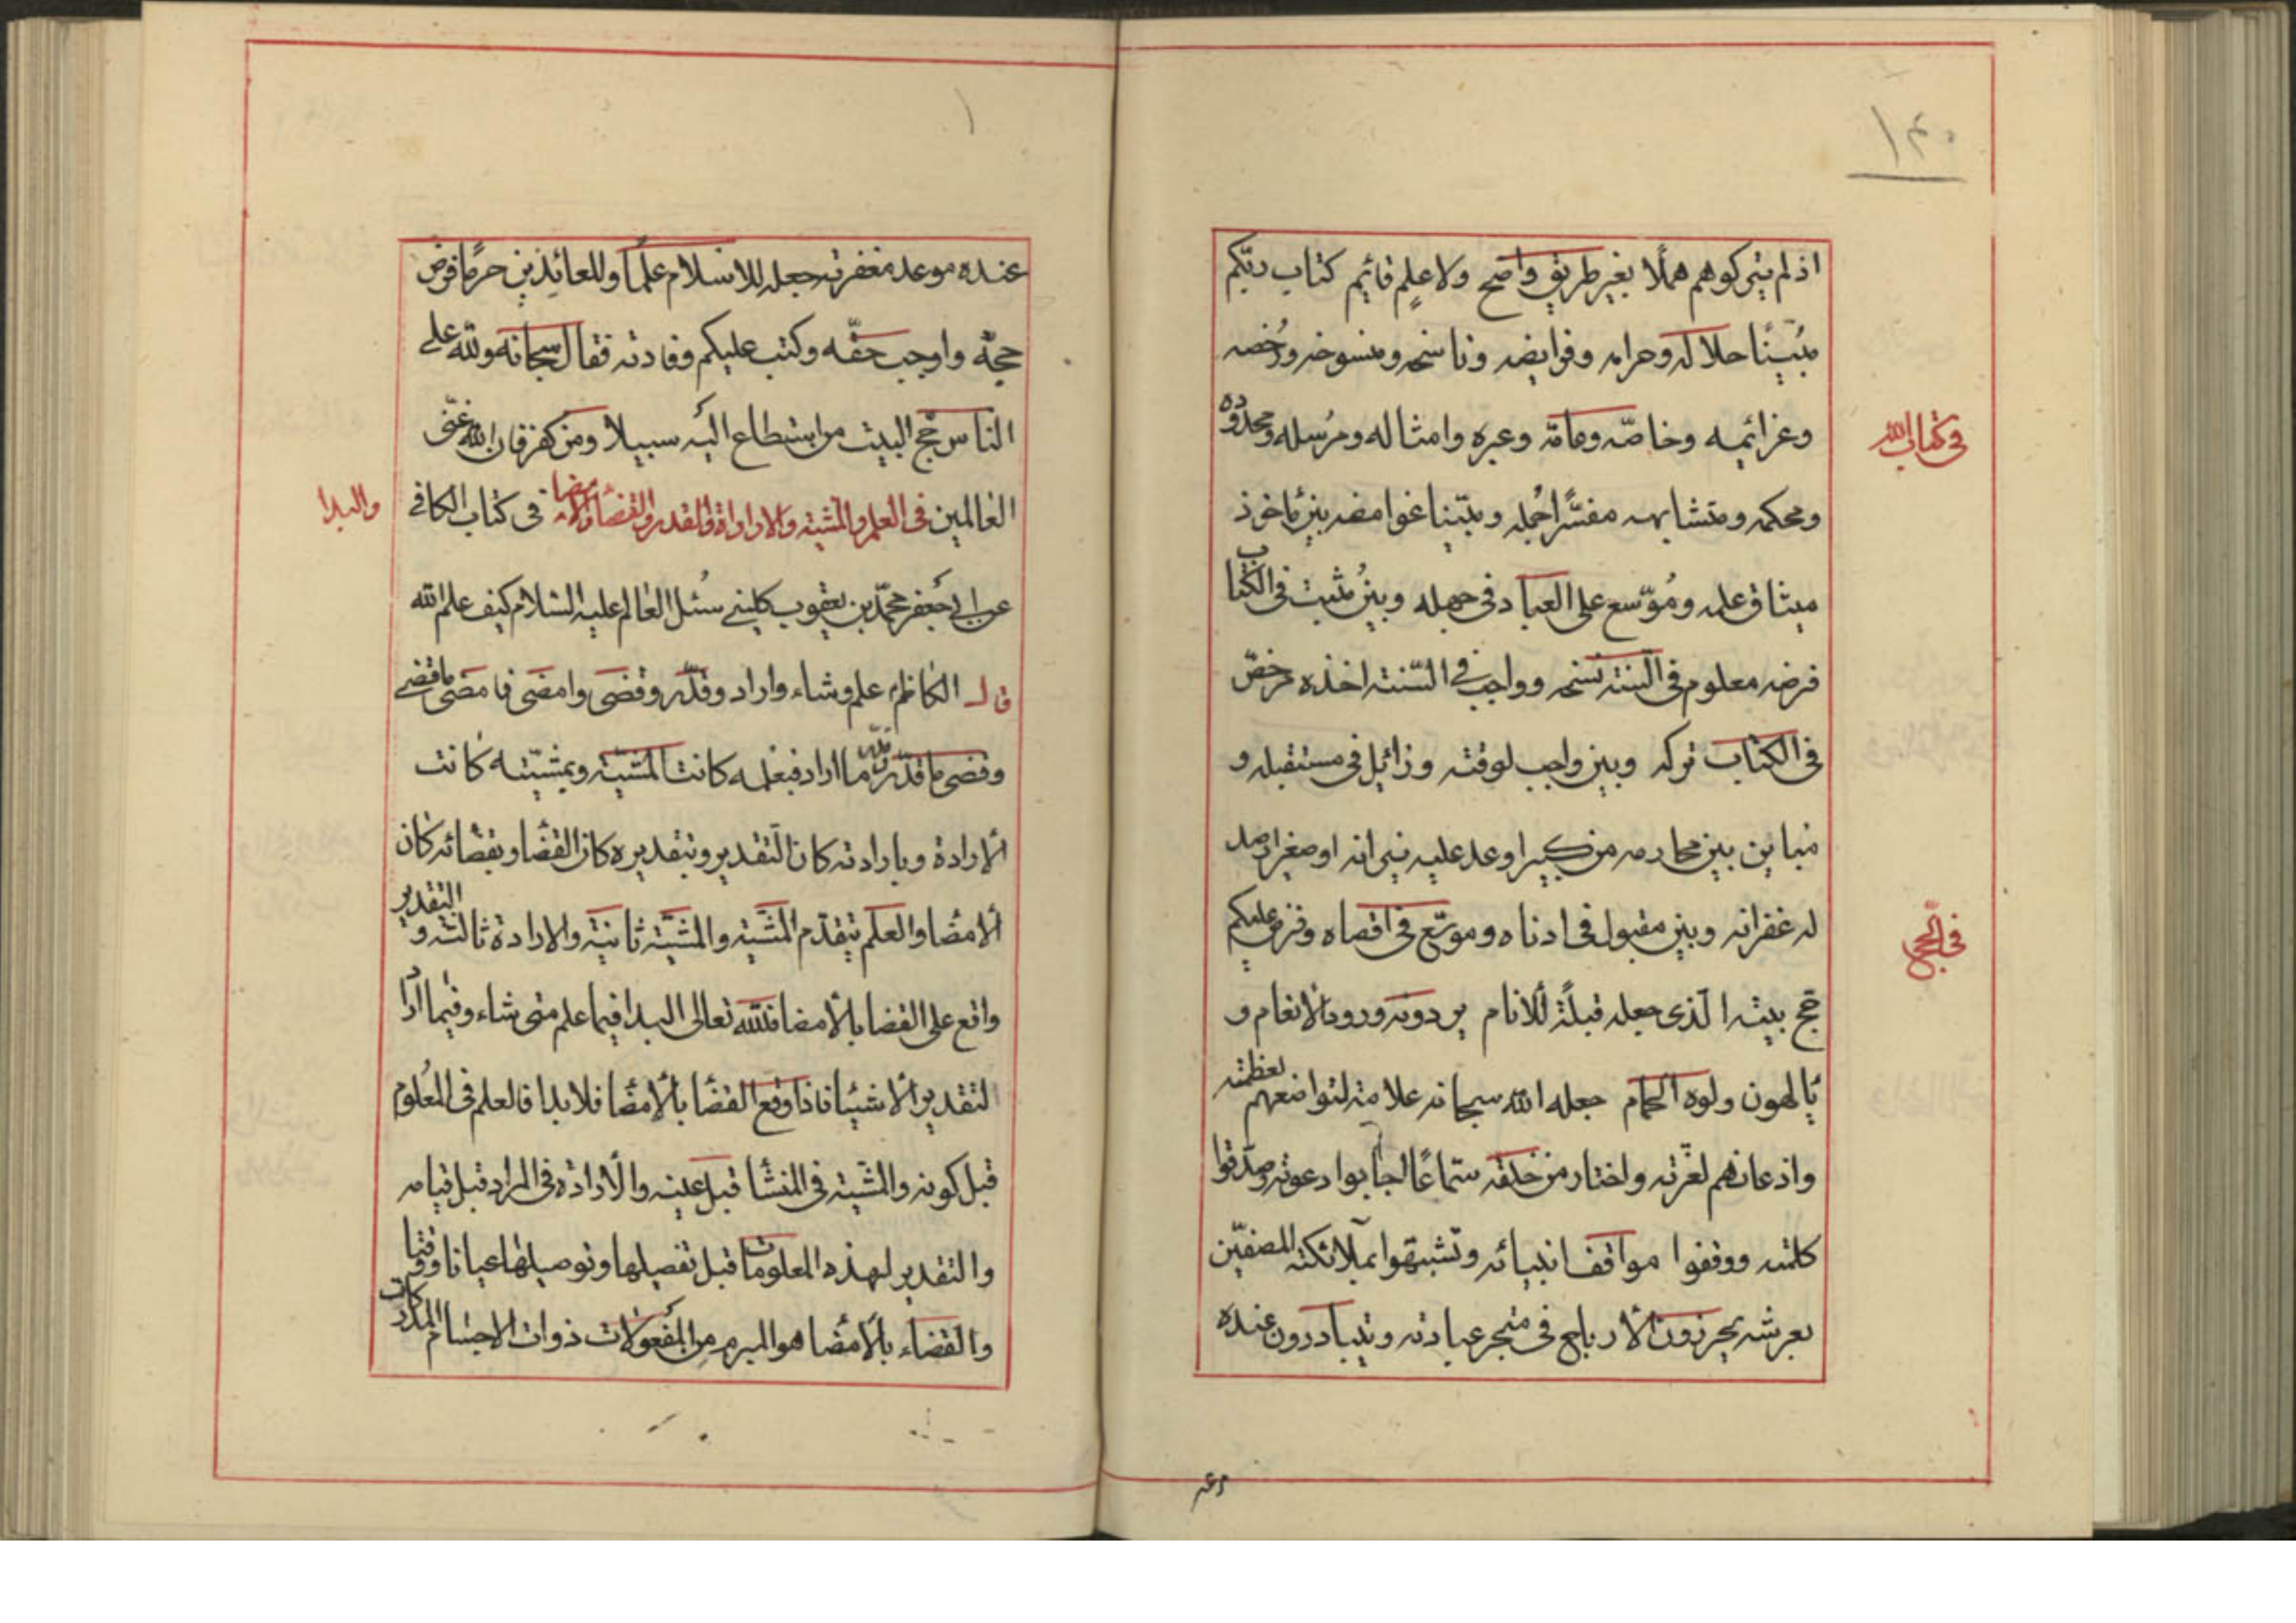 ١٤٠
اذ لم يتركوهم هملًا بغير طريق واضح ولا علم قائم كتاب ربّكم
مُبيّنًا حلاله وحرامه وفرايضه وناسخه ومنسوخه ورُخصه
وعزائمه وخاصّه وعامّه وعبره وامثاله ومرُسله ومحدوده
في كتاب الله
ومحكمه ومتشابهه مفسّرًا جُمله ومبيّنا غوامضه بين ماخوذ
ميثاق علمه ومُوّسع على العباد في جهله وبين مُثبت في الكتاب
فرضه معلوم في السنته نسخه وواجب في السّنته اخذه مرخصّ
في الكتاب تركه وبين واجب لوقته وزائيل في مستقبله و
مباين بين محارمه من كبير اوعد عليه نيرانه او صغير ارصد
له غفرانه وبين مقبول في ادناه وموسّع في اقصاه وفرض عليكم
في الحّج
حج بيته الّذى جعله قبلًة للانام يردونه ورود الانعام و
يالهون ولوه الحمام جعله الله سبحانه علامته لتواضعهم لعظمته
واذعانهم لعزّته واختار من خلقه سمّاعًا اجابوا دعوته وصدّقوا
كلمته ووقفوا مواقف انبيائه وتشبهّوا بملآئكته المصفيّن
بعرشه يحرزون الأرباح في متجر عبادته ويتبادرون عنده
عنده موعد مغفرته جعله للاسلام علمًا وللعائذين حرمًا فرض
حجّه واوجب حقّه وكتب عليكم وفادته فقال سبحانه ولله على
الناس حّج البيت من استطاع اليه سبيلا ومن كفر فان الله غنّى
العالمين في العلم والمشيته والاراداة والقدر والقضا والامضا في كتاب الكافي
والبدا
عن ابي جعفر محمّد بن يعقوب كليني سئل العالم عليه السلام كيف علم الله
قال الكاظم علم وشاء واراد وقدّر وقضى وامضى فامضى ماقضى
وقضى ماقدّر وقدّر ما اراد فبعلمه كانت المشيّته وبمشيّته كانت
ألارادة وبارادته كان التقدير وبتقديره كان القضّا وبقضائه كان
ألامضا والعلم يتقدّم المشّيته والمشيّته ثانيته والارادة ثالثته والتقدير
واقع على القضا بالأمضا فللّه تعالى البدا فيما علم متى شاء وفيما ارا د
لتقدير ألاشيئا فاذا وقع القضا بالأمضا فلا بدا فالعلم في المعلوم
قبل كونه والمشّيته في المنشأ قبل عينه والأرادة في المراد قبل قيامه
والتقدير لهذه المعلومات قبل تفصيلها وتوصيلها عيانا ووقتا
والقضاء بالأمضا هو المبرم من المفعولات ذوات الاجسام المدركات